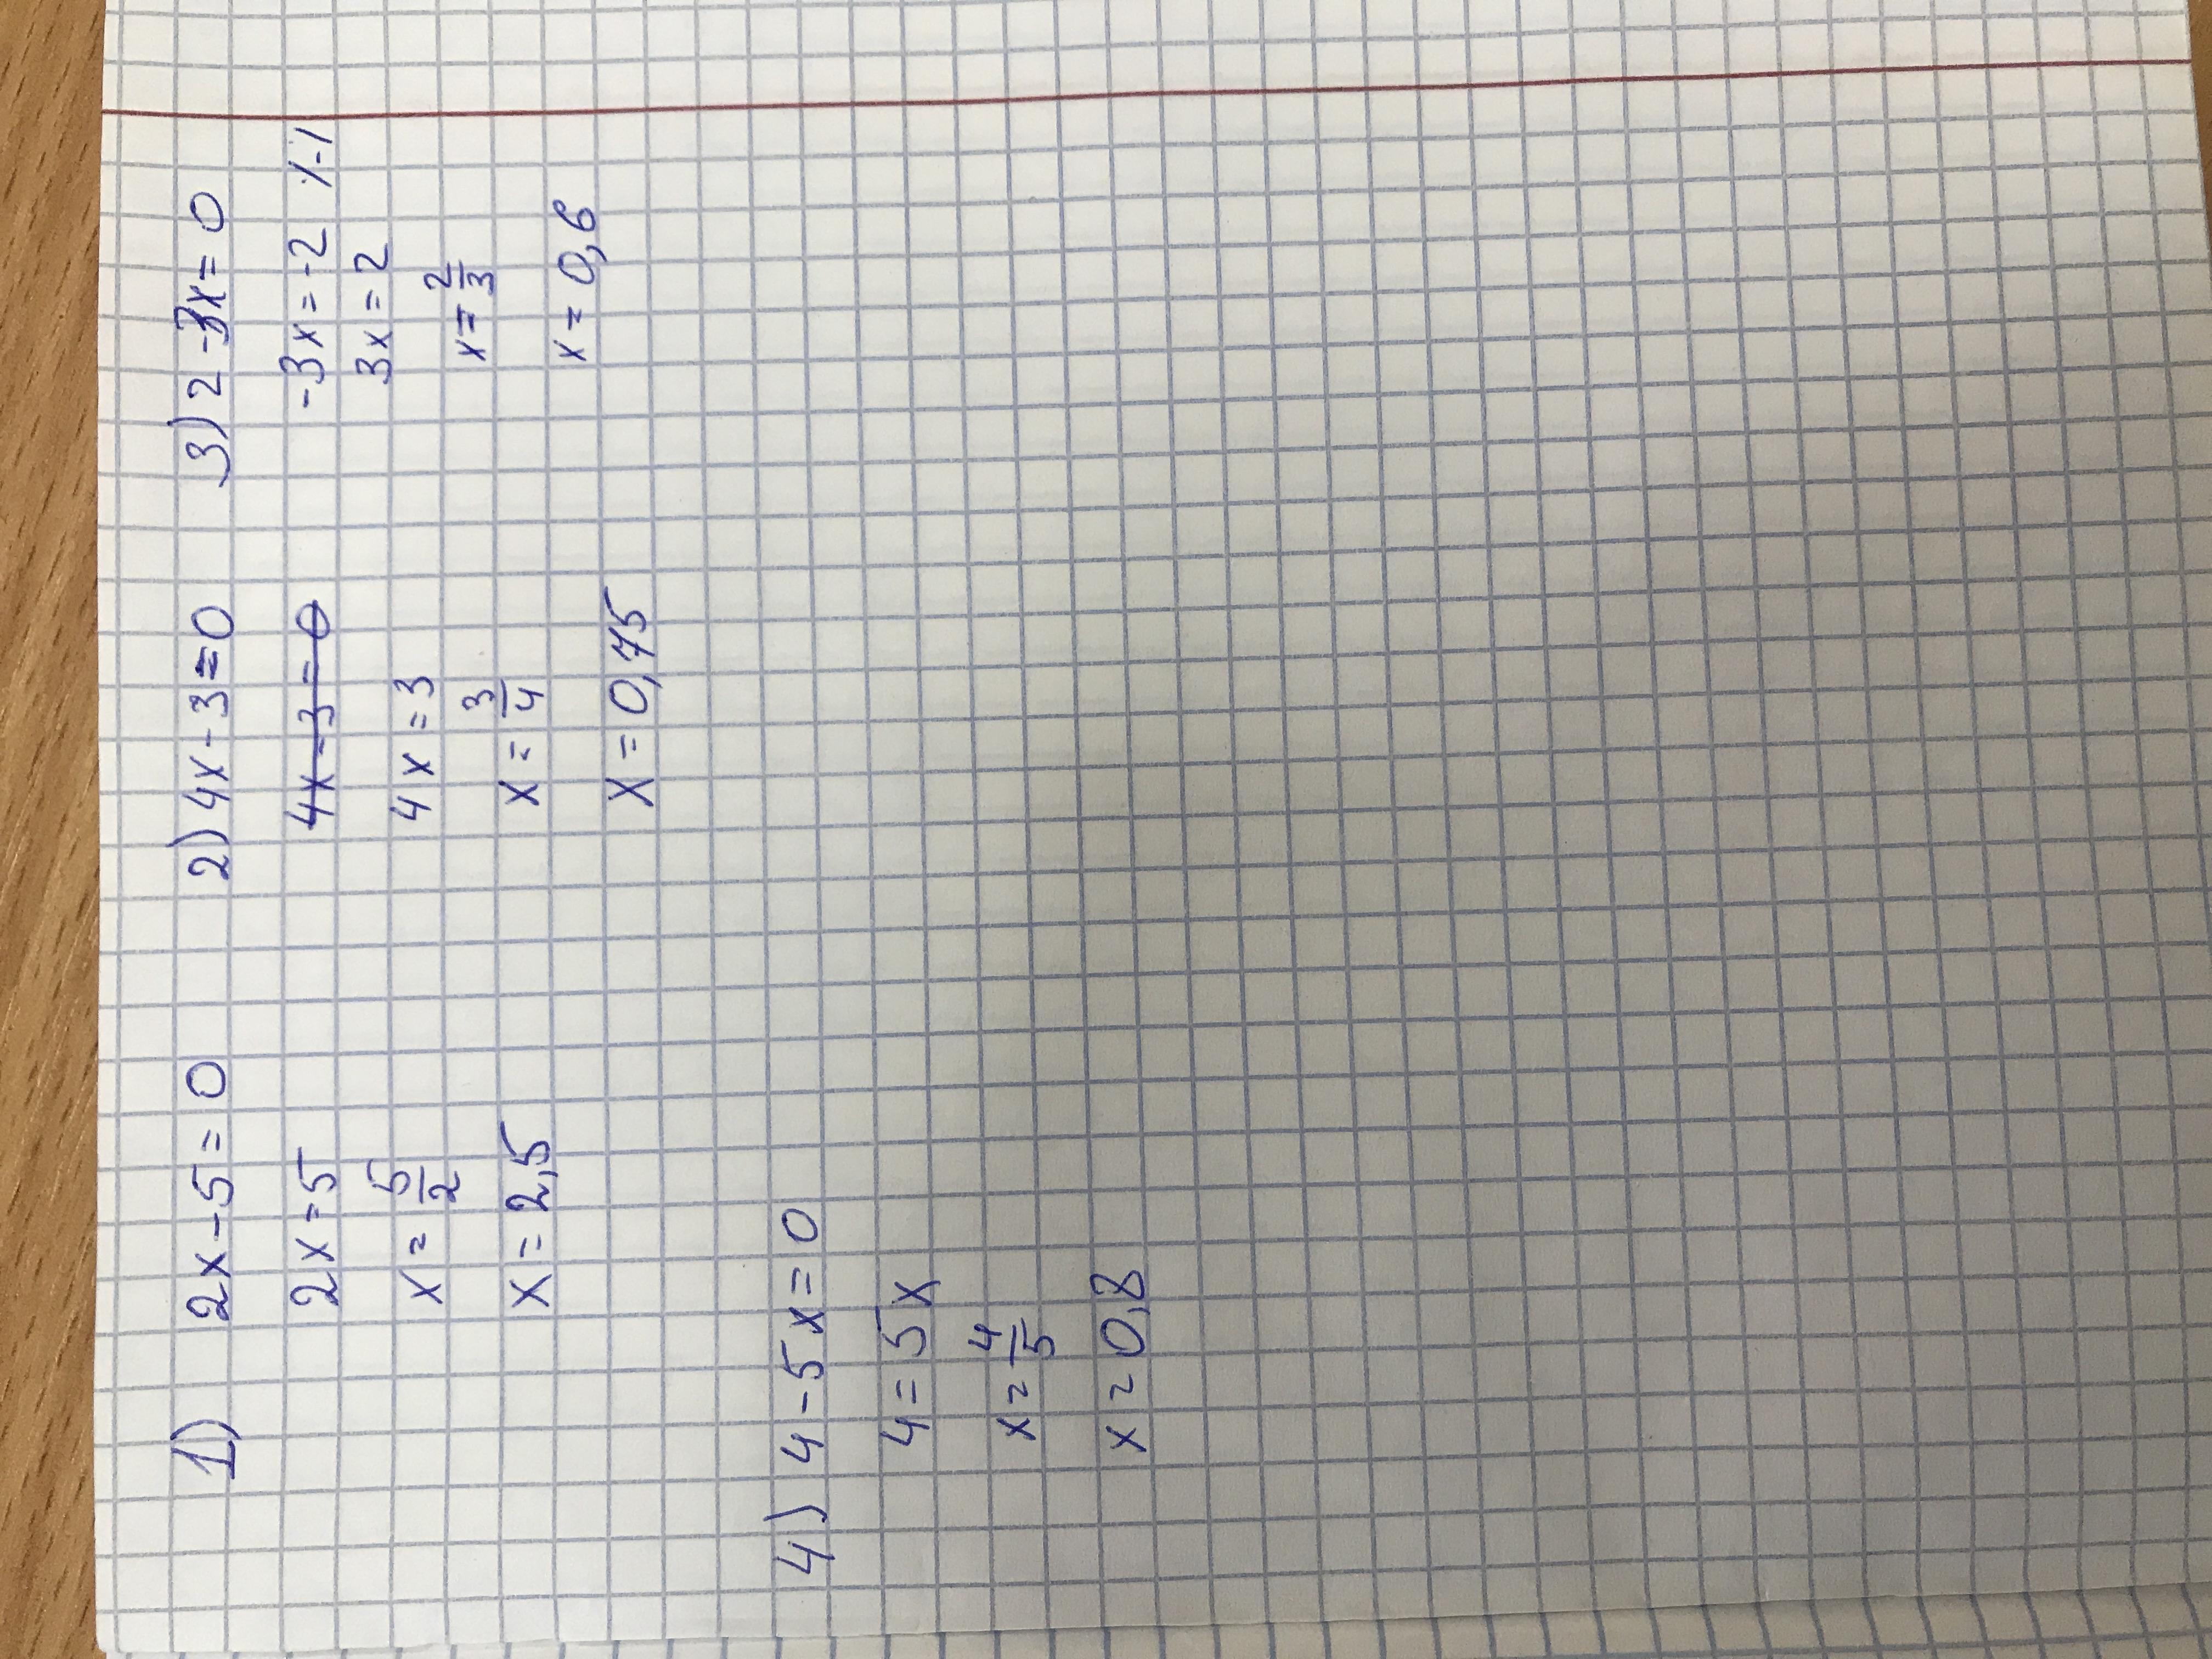 1) 2x-5=0
2x=5
x=5/2
x=2,5
2) 4x-3=0
4x-3=0
4x=3
x=3/4
x=0,75
3) 2-3x=0
-3x=-2 /·-1
3x=2
x=2/3
x=0,6
4) 4-5x=0
4=5x
x=4/5
x=0,8